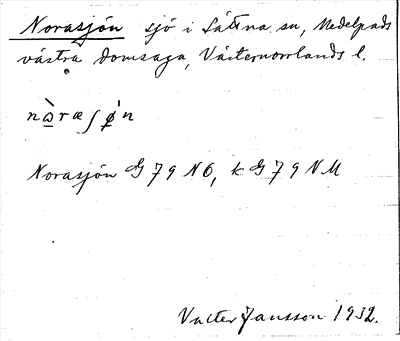 Norasjön sjö i Sättna sn, Medelpads
västra domsaga, Västernorrlands l.
Norasjön G 79 NO, k G 79 NM
Valter Jansson 1932.